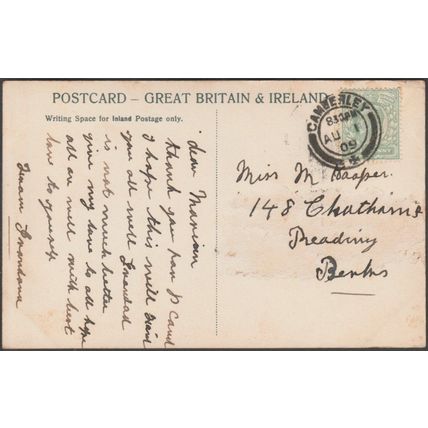 POSTCARD – GREAT BRITAIN & IRELAND
Writing Space for Inland Postage only.
CAMBERLEY
830PM
AU 1
09
dear Marion
thank you for P Card
I hope this will find
you all well Grandad
is not much better
give my love to all hope
all are well with best
love to yourself
from Grandma
Miss M Hooper.
148 Chatham S
Reading
Berks